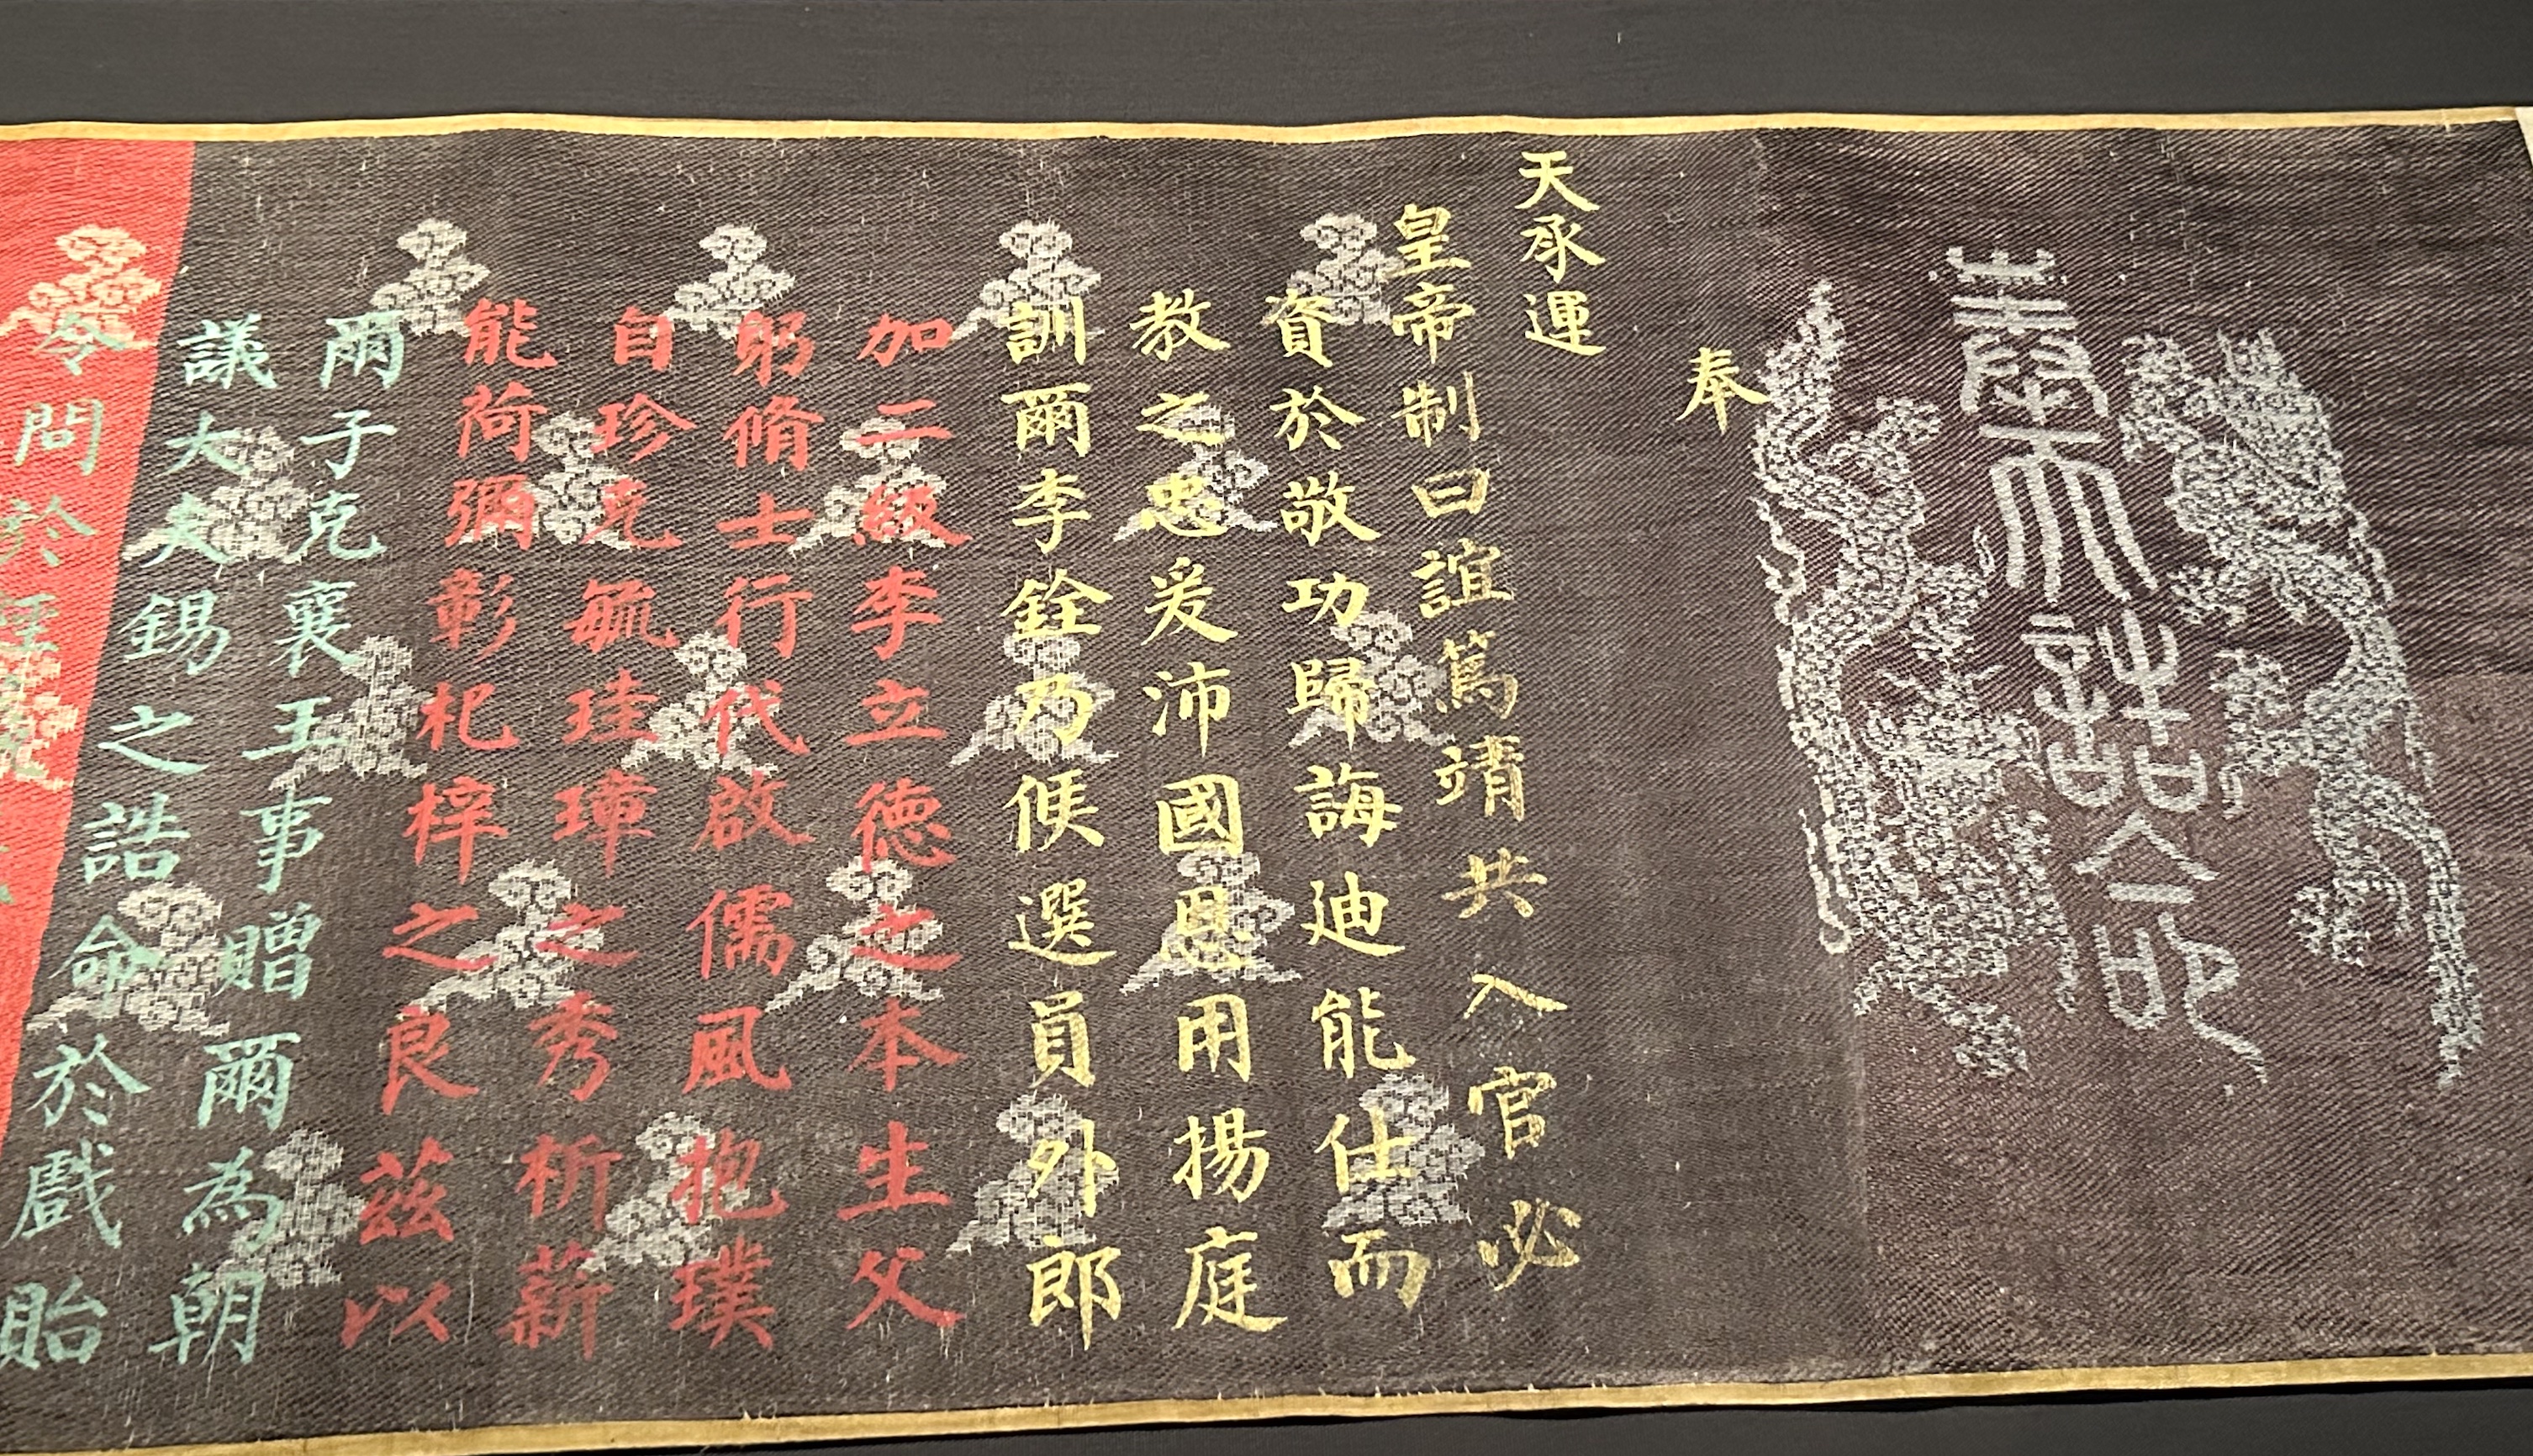 奉天誥命
奉
天承運
皇帝制曰誼篤靖共入官必
資於敬功歸誨迪能仕而
教之忠爰沛國恩用揚庭
訓爾李銓乃候選員外郎
加二級李立德之本生父
躬脩士行代啟儒風抱璞
自珍克毓珪璋之秀析薪
能荷彌彰杞梓之良茲以
爾子克襄王事贈爾為朝
議大夫錫之誥命於戲貽
令問於